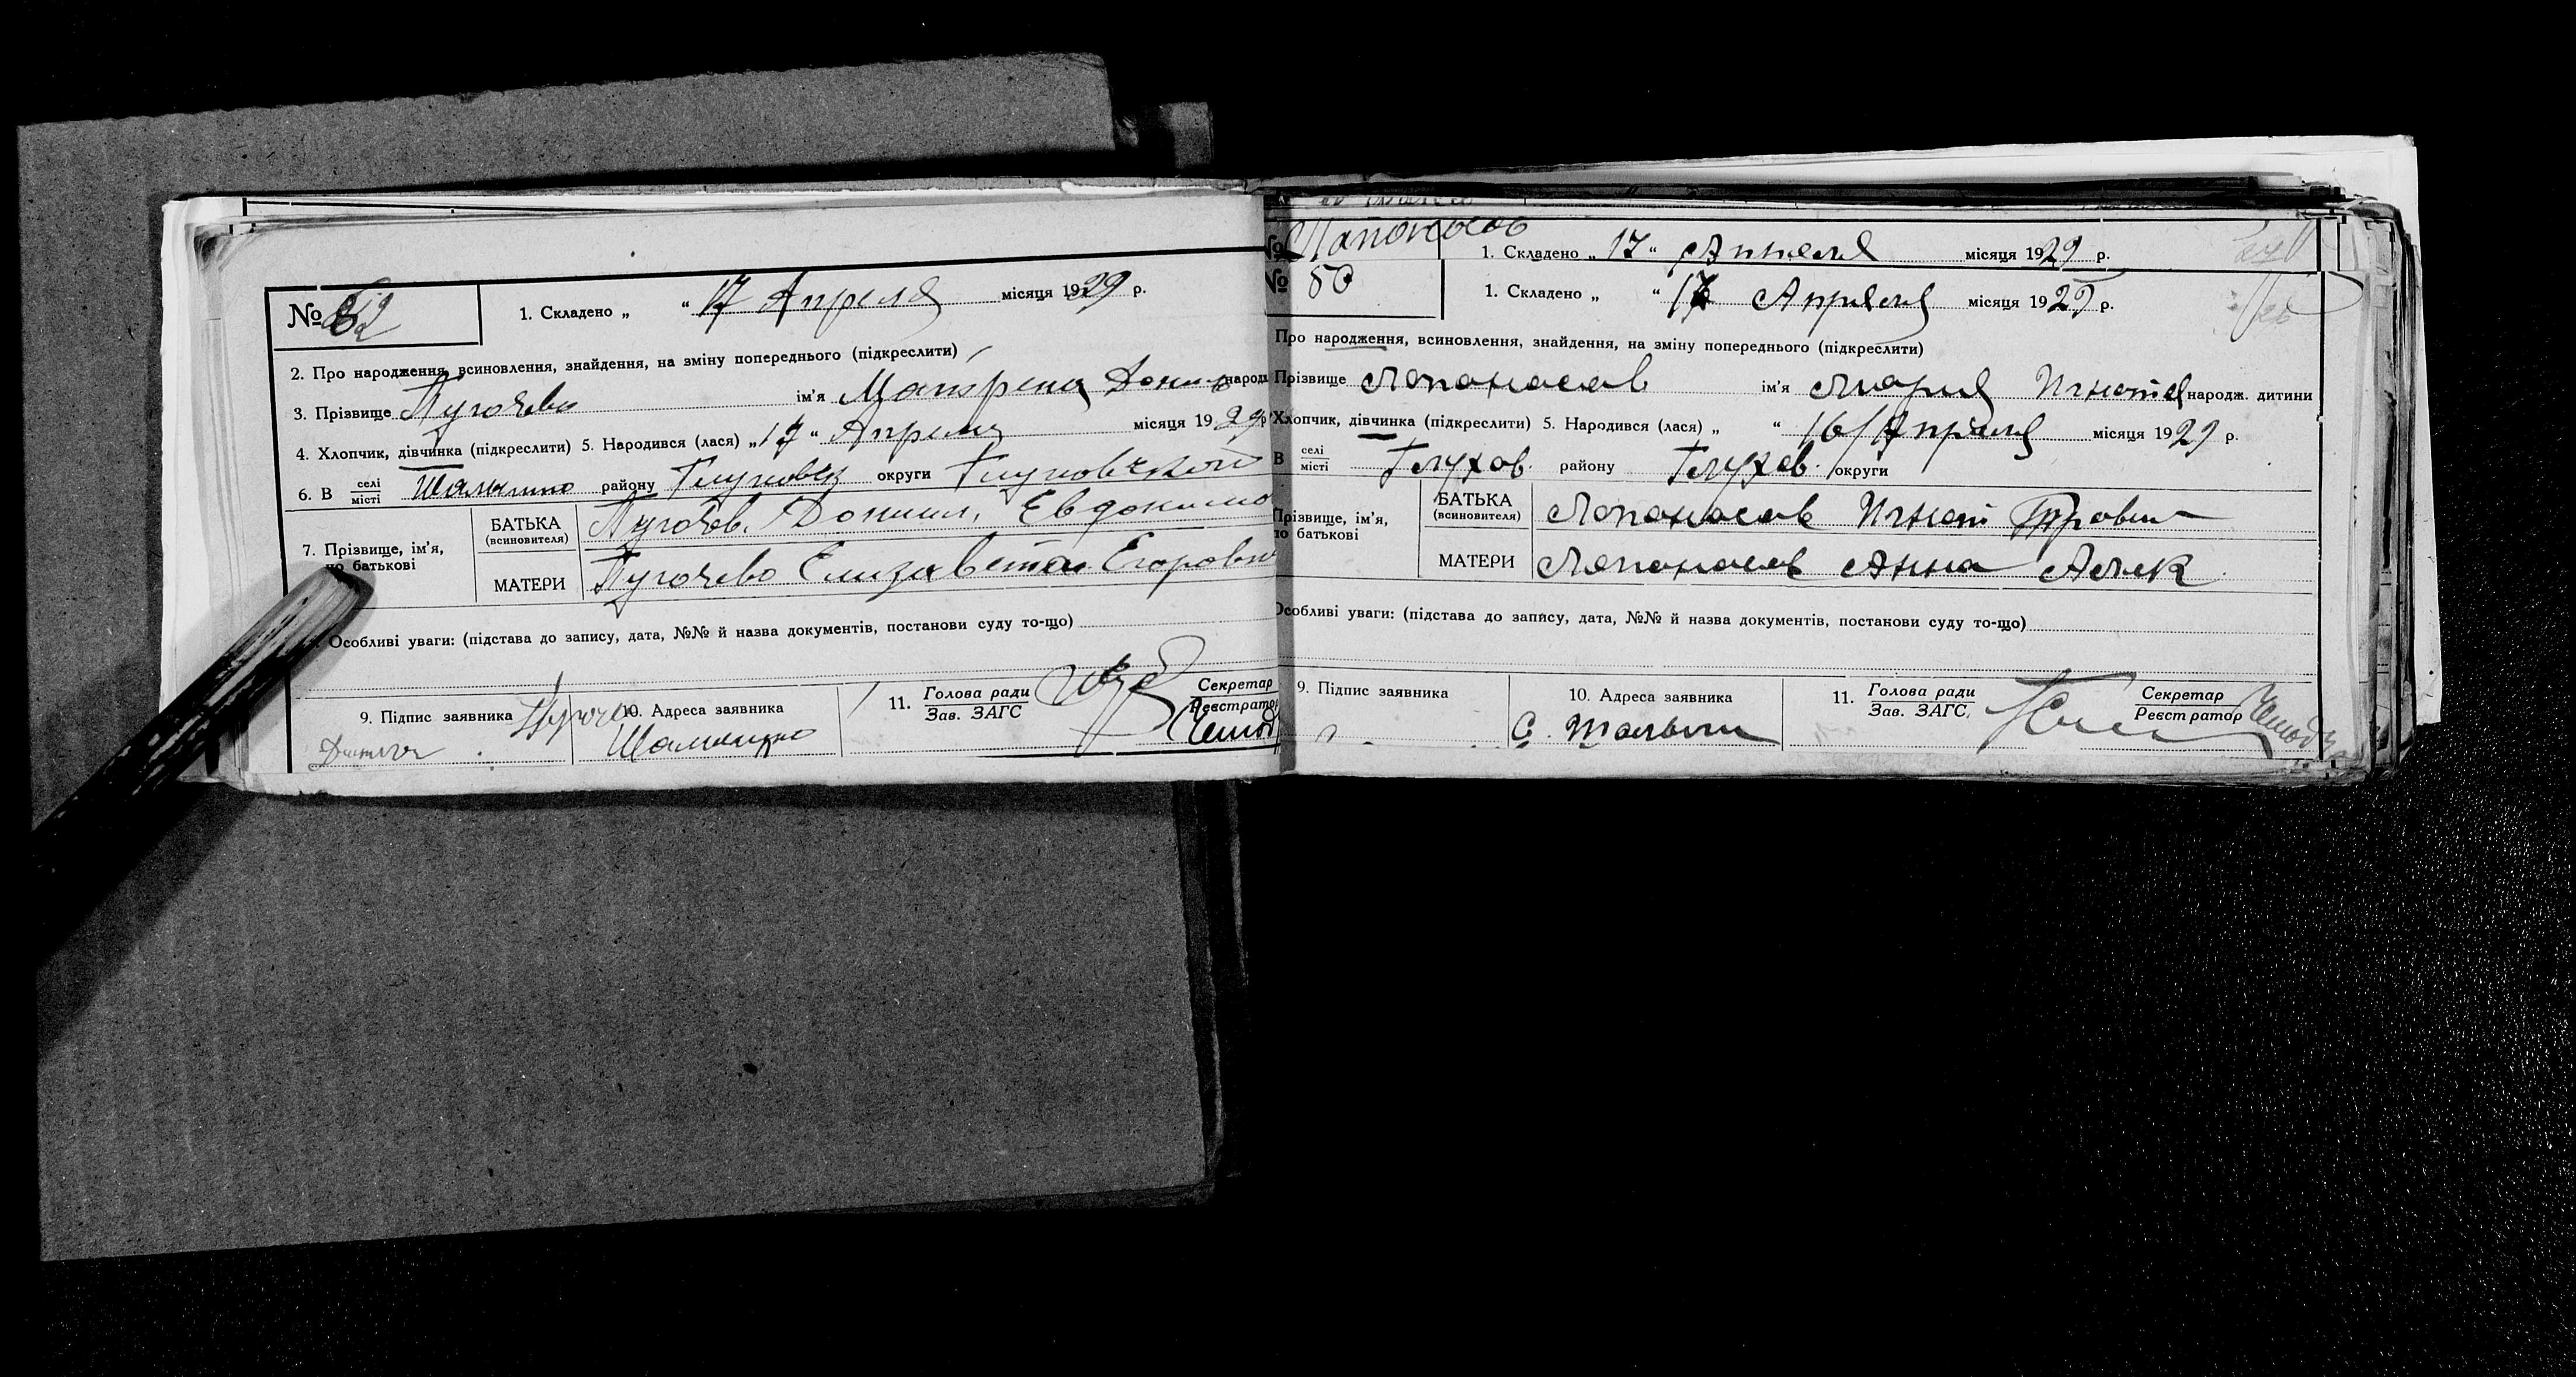 № 62
1. Складено „ “ 17 Апреля місяця 1929 р.
2. Про народження, всиновлення, знайдення, на зміну попереднього (підкреслити)
3. Прізвище Пугочева ім'я Матрена народ
4. Хлопчик, дівчинка (підкреслити) 5. Народився (лася) „17“ Апреля місяця 1929 р
6. В селі місті Шалыгино району Глуховск округи Глуховской
7. Прізвище, ім'я, по батькові
БАТЬКА (всиновителя) Пугочев. Donиил, Евдокимо
МАТЕРИ Пугочева Елизавета Егоровн
Особливі уваги: (підстава до запису, дата, №№ й назва документів, постанови суду то-що)
9. Підпис заявника
10. Адреса заявника Шалыгино
11. Голова ради Зав. ЗАГС
Секретар Реєстратор
№
1. Складено „17“ Апреля місяця 1929 р.
№ 60
1. Складено „ “ 17 Апреля місяця 1929 р.
Про народження, всиновлення, знайдення, на зміну попереднього (підкреслити)
Прізвище Лопоносов ім'я Мария Игнатов народж. дитини
Хлопчик, дівчинка (підкреслити) 5. Народився (лася) „ “ 16/Апреля місяця 1929 р.
В селі місті Глухов. району Глухов. округи
Прізвище, ім'я, по батькові
БАТЬКА (всиновителя) Лопоносов Игнат
МАТЕРИ Лопоносов Анна Алек
Особливі уваги: (підстава до запису, дата, №№ й назва документів, постанови суду то-що)
9. Підпис заявника
10. Адреса заявника С. Шалыги
11. Голова ради Зав. ЗАГС.
Секретар Реєстратор